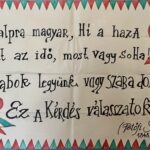 alpra magyar, Hi a haza
tt az idő, most vagy soha!
abok legyünk vagy szabado
Ez a Kérdés válasszatok